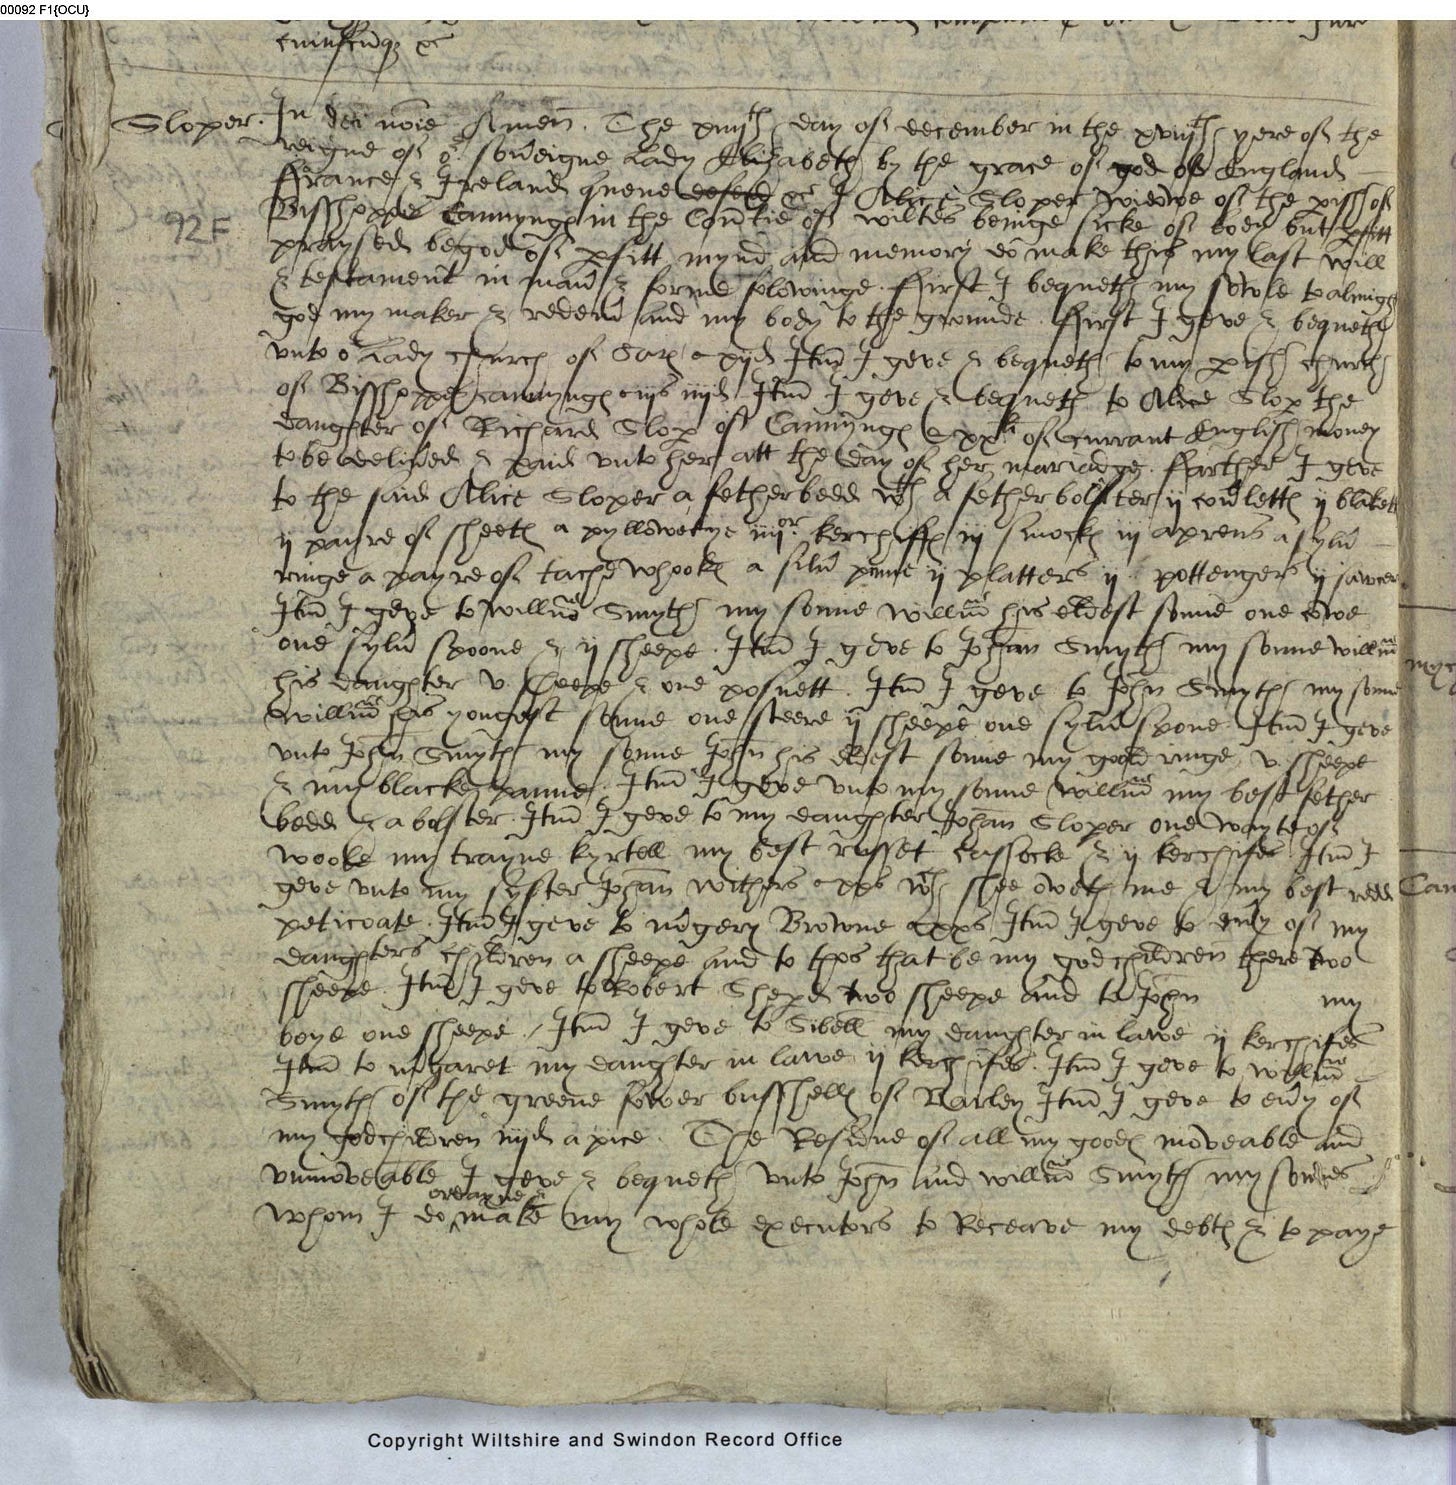 00092 F1{OCU}
cuiuscu̅q̨ &c
Sloper. In dei no̅ie Amen. The xiiijth day of december in the xviijth yere of the
reigne of or sov̅eigne Lady Elizabeth by the grace of god of England
ffrance & Ireland quene defend &c I Alice Sloper widowe of the pissh of
92F
Bisshoppes Cannyngs in the Countie of wiltes beinge sicke of body but
praysed be god of pfitt mynd and memory do make this my last will
& testament in man̅ & forme folowinge. ffirst I bequeth my sowle to almigh
god my maker & redem̅ and my body to the grounde. ffirst I geve & bequeth
vnto or Lady church of Sar̅ xijd Itm̅ I geve & bequeth to my pish church
of Bisshoppes cannyngs iijs iiijd Itm̅ I geve & bequeth to Alice Slop the
daughter of Richard Slop of Cannyngs xxli of currant English money
to be deliv̅ed & paid vnto her att the day of her mariadge. ffarther I geve
to the said Alice Sloper a fetherbedd wth a fether bolster ij cov̅letts ij blanketts
ij payre of sheets a pyllowetye iiijor kercheffs iij smocks iij aprens a sylv̅
ringe a payre of tache whooks a silv̅ pinne ij platters ij pottengers ij sawcers
Itm̅ I geve to willm̅ Smyth my sonne willm̅ his eldest sonne one cowe
one sylv̅ spoone & ij sheepe. Itm̅ I geve to Johan Smyth my sonne willm̅
his daughter v sheepe & one posnett. Itm̅ I geve to John Smyth my sonne
willm̅ his yongest sonne one steere ij sheepe one sylv̅ spone Itm̅ I geve
vnto John Smyth my sonne John his eldest sonne my goold ringe v sheepe
& my blacke panne. Itm̅ I geve vnto my sonne willm̅ my best fether
bedd & a bolster. Itm̅ I geve to my daughter Johan Sloper one wayte of
woole my trayne kyrtell my best russet cassocke & ij kerchifes Itm̅ I
geve vnto my syster Johan withers wch shee oweth me & my best redd
peticoate. Itm̅ I geve to m̅gery Browne xxs Itm̅ I geve to ev̅y of my
daughters children a sheepe and to thos that be my godchildren there two
sheepe. Itm̅ I geve to Robert Sheperd two sheepe and to John my
boye one sheepe. Itm̅ I geve to Sibell my daughter in lawe ij kerchifes
Itm̅ to m̅garet my daughter in lawe ij kerchifes. Itm̅ I geve to willm̅
Smyth of the greene fower busshells of Barley Itm̅ I geve to ev̅y of
my godchildren iiijd a pice. The Residue of all my goods moveable and
vnmoveable I geve & bequeth vnto John and willm̅ Smyth my sonnes
whom I do ordayne & make my whole executors to Receave my debts & to paye
Copyright Wiltshire and Swindon Record Office